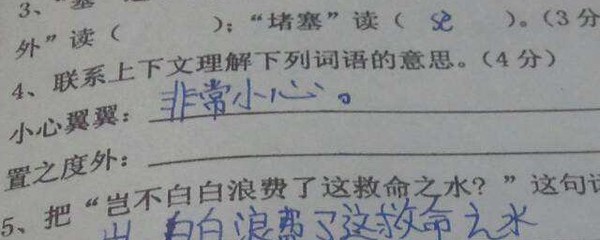 3、“塞
外”读（ ）；“堵塞”读（ sè ）。（3分
4、联系上下文理解下列词语的意思。（4分）
小心翼翼：非常小心。
置之度外：
5、把“岂不白白浪费了这救命之水？”这句话
白白浪费了这救命之水